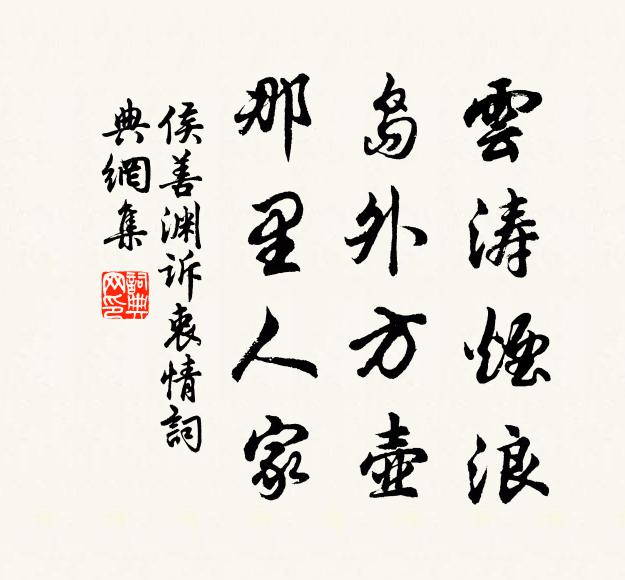 雲涛煙浪
島外方壺
那里人家
侯善渊诉衷情詞
典網集
詞典网印